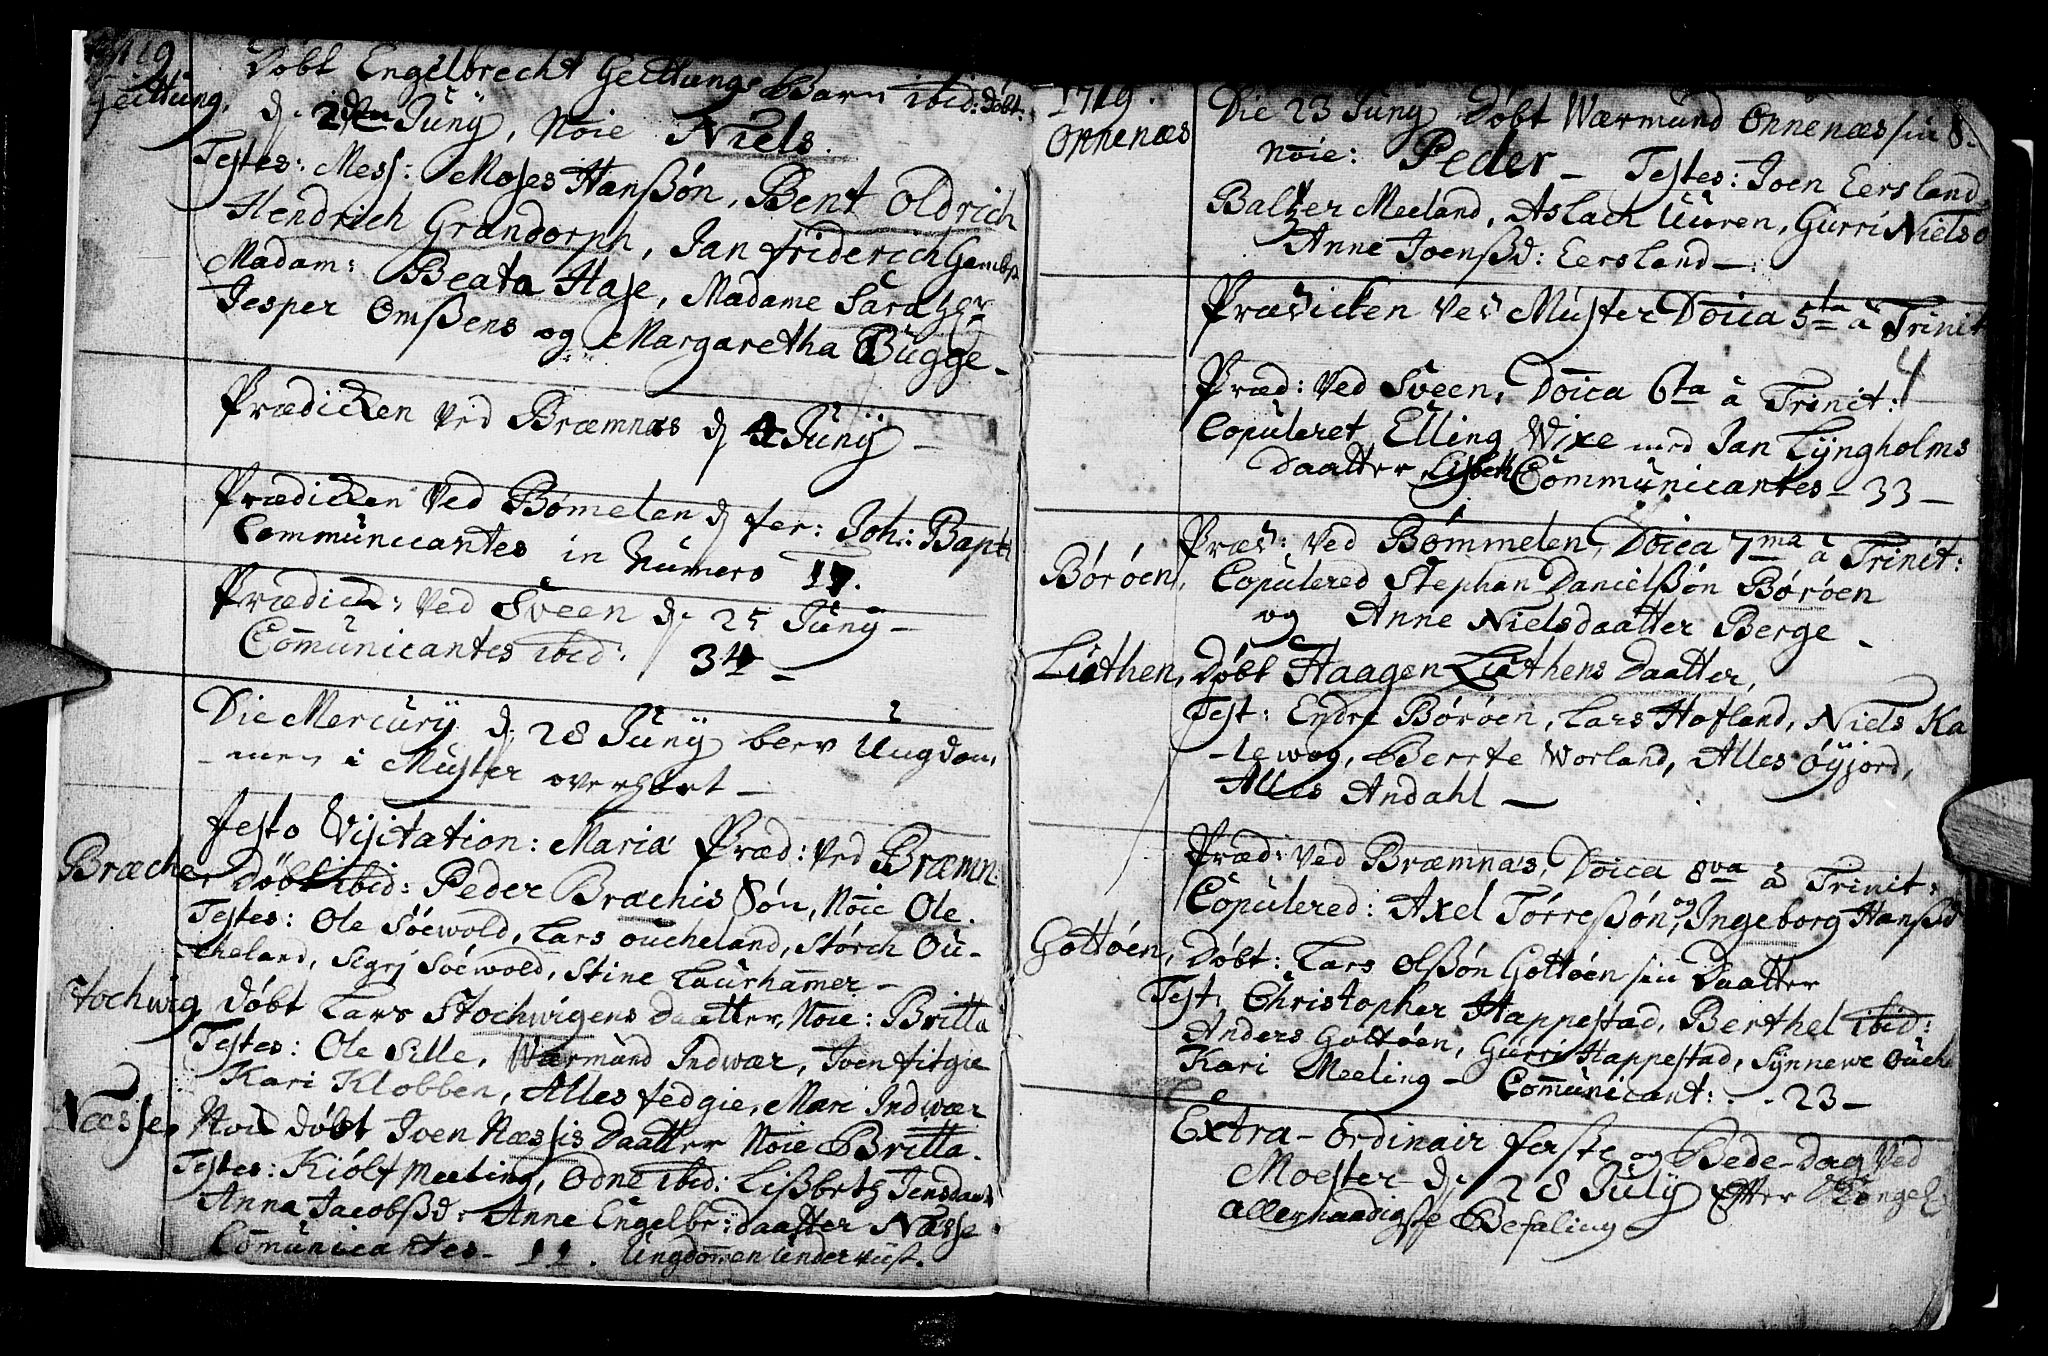 1719
Geittung, Døbt Engelbrecht Geittungs Barn ibid: døbt.
d. 2den Juny, Noie Niels.
Testes: Mess: Moses Hanßøn, Bent Oldrich
Hendrich Grandorph, Jan friderich
Madam: Beata Hase, Madame Sara
Jesper Omßens og Margaretha Bugge.
Prædicken ved Bræmnæs d 4 Juny
Prædicken ved Bømelen d fer: Joh: Bapt:
Communicantes in Numero 17.
Prædick: ved Sveen d. 25 Juny
Com̄unicantes ibid: 34
Die Mercurij d. 28 Juny blev Ungdom,
men i Muster overhørt
festo Visitation: Maria Præd: ved Bræmn:
Bræche, Døbt ibid: Peder Bræchis Søn, Noie Ole.
Testes: Ole Söewold, Lars oucheland, Störch Ou-
cheland, Segrj Söewold, Stine Laurham̄er
Stochwig, døbt Lars Stochwigens Daatter, Noie: Britta
Testes: Ole Sille, Wærmund Indwær, Joen fitgie
Kari Klobben, Alles fedgie, Mari Indwær
Næsse, Noch døbt Joen Næssis Daatter Noie Britta.
Testes: Kiólf Meeling, Odne ibid: Lißbeth Jensdaat
Anna Jacobßd: Anne Engelbr: daatter Næsse
Com̄unicantes 11. Ungdom̄en Underviist.
1719.
Onnenæs Die 23 Juny Døbt Wærmund Onnenæs sin S.
Noie: Peder Testes: Joen Eersland,
Baltzer Meeland, Aslach Uuren, Gurri Niels d
Anne Joensßd: Eersland
Prædicken ved Muster Doica 5ta â Trinit
4
Præd: ved Sveen, Doica 6ta â Trinit:
Copuleret Elling Wixe med Jan Lyngholms
Daatter Lisbeth Communicantes - 33
Præd: ved Bömmelen, Doica 7ma â Trinit:
Börøen, Copulered Stephan Danielßøn Børøen
og Anne Nielsdaatter Berge
Liethen, Døbt Haagen Liethens Daatter,
Test: Endre Børøen, Lars Hofland, Niels Ka
-lewog, Berrte Worland, Alles öyjord,
Alles Andahl
Præd: ved Bræmnæs, Doica 8va â Trinit:
Copulered: Axel Törreßón, og Ingeborg Hanßd
Gottöen, Døbt: Lars Olßón Gottöen sin Daatter
Test: Christopher Happestad, Berthel ibid:
Anders Gottöen, Gurri Happestad, Synnewe Ouche
Kari Meeling Com̄unicant: 23
Extra-ordinair ferste og Bede-dag ved
Moester d. 28 July Efter Kongel:
allernaadigste Befaling